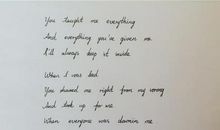 You taught me everything
And everything you've given me
I'll always keep it inside
When I was bad
You showed me right from my wrong
And took up for me
When everyone was downin me